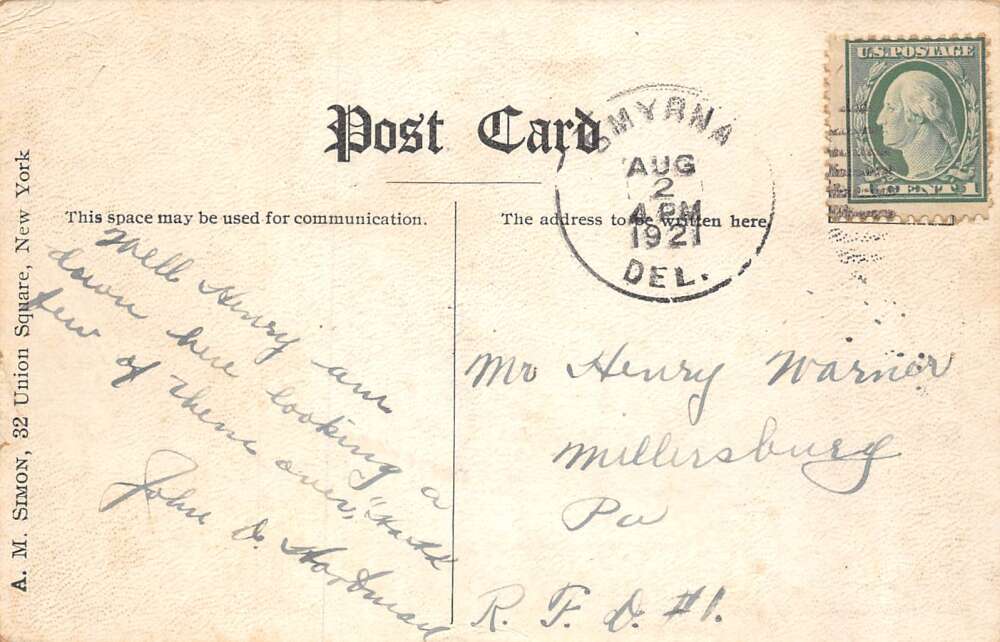 Post Card
SMYRNA
AUG
2
4 PM
1921
DEL.
U.S. POSTAGE
1 CENT 1
This space may be used for communication.
The address to be written here
A. M. SIMON, 32 Union Square, New York
Well Henry am
down here looking a
few of these over,
John D. Hartman
Mr Henry Warner
Millersburg
Pa
R. F. D. #1.